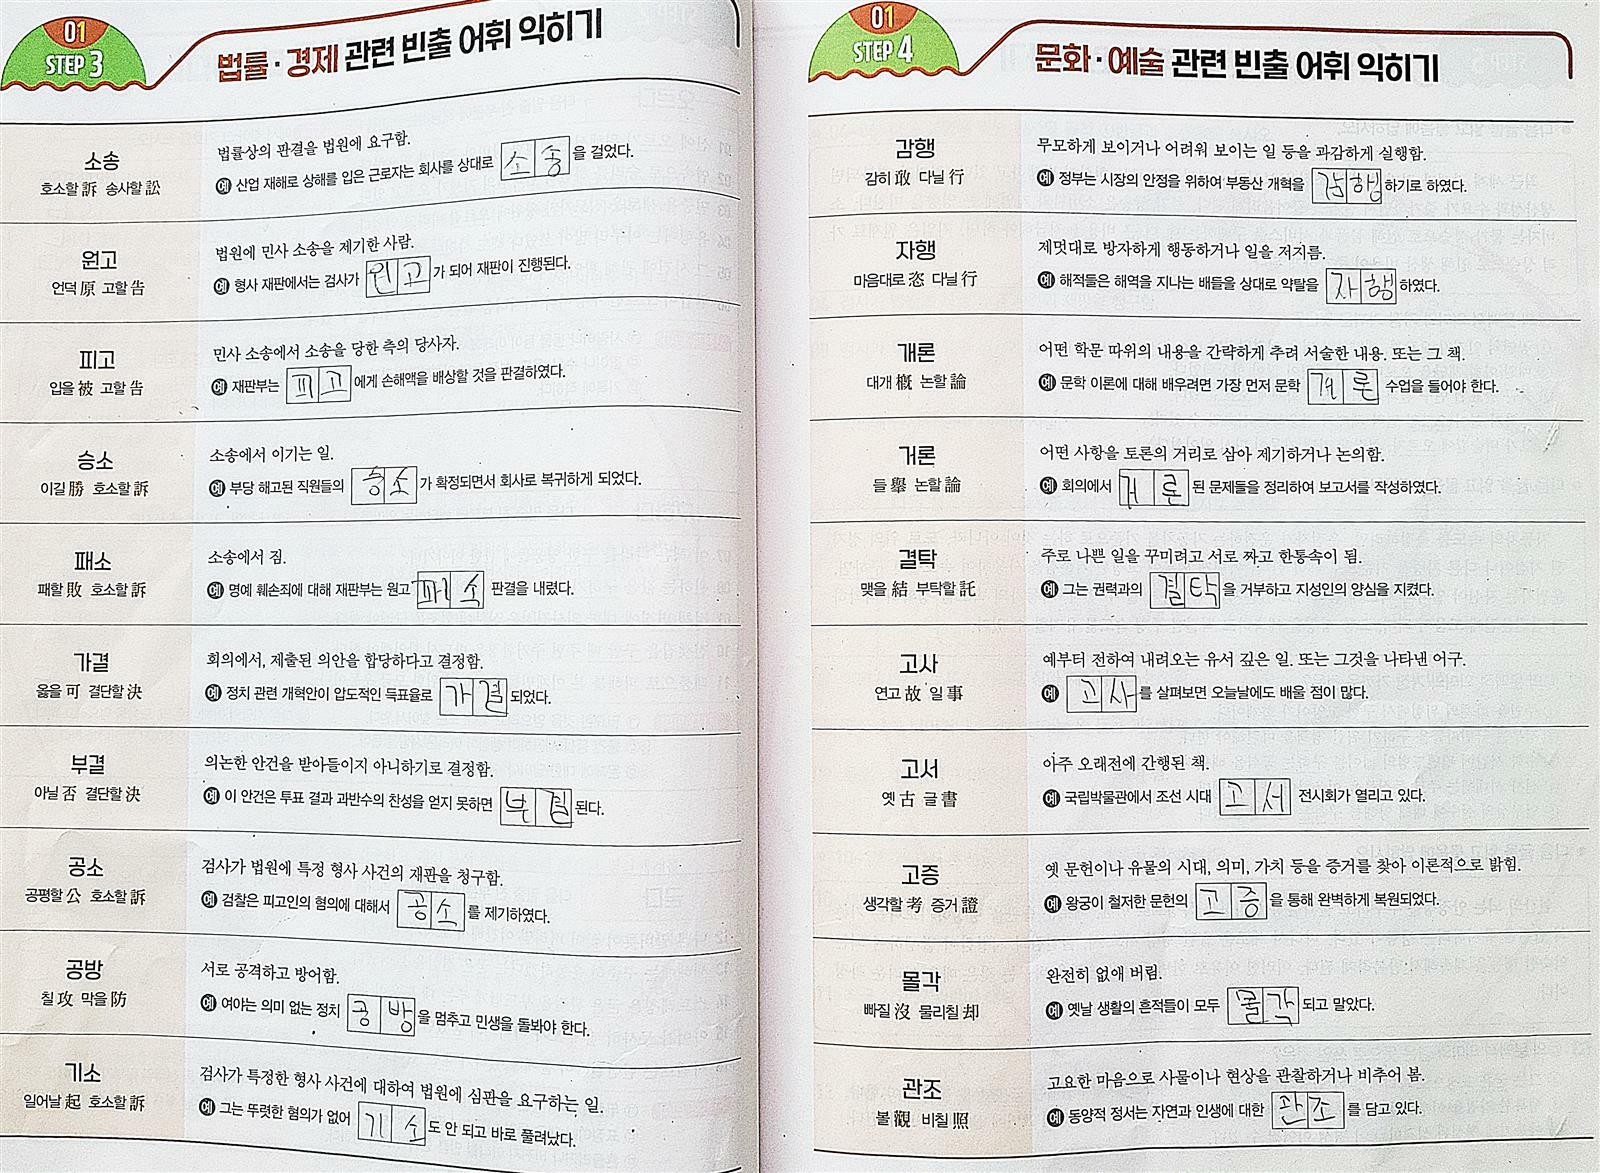 01
STEP 3
법률·경제 관련 빈출 어휘 익히기
소송
호소할 訴 송사할 訟
법률상의 판결을 법원에 요구함.
예 산업 재해로 상해를 입은 근로자는 회사를 상대로 소송을 걸었다.
원고
언덕 原 고할 告
법원에 민사 소송을 제기한 사람.
예 형사 재판에서는 검사가 원고가 되어 재판이 진행된다.
피고
입을 被 고할 告
민사 소송에서 소송을 당한 측의 당사자.
예 재판부는 피고에게 손해액을 배상할 것을 판결하였다.
승소
이길 勝 호소할 訴
소송에서 이기는 일.
예 부당 해고된 직원들의 승소가 확정되면서 회사로 복귀하게 되었다.
패소
패할 敗 호소할 訴
소송에서 짐.
예 명예 훼손죄에 대해 재판부는 원고 패소 판결을 내렸다.
가결
옳을 可 결단할 決
회의에서, 제출된 의안을 합당하다고 결정함.
예 정치 관련 개혁안이 압도적인 득표율로 가결되었다.
부결
아닐 否 결단할 決
의논한 안건을 받아들이지 아니하기로 결정함.
예 이 안건은 투표 결과 과반수의 찬성을 얻지 못하면 부결된다.
공소
공평할 公 호소할 訴
검사가 법원에 특정 형사 사건의 재판을 청구함.
예 검찰은 피고인의 혐의에 대해서 공소를 제기하였다.
공방
칠 攻 막을 防
서로 공격하고 방어함.
예 여야는 의미 없는 정치 공방을 멈추고 민생을 돌봐야 한다.
기소
일어날 起 호소할 訴
검사가 특정한 형사 사건에 대하여 법원에 심판을 요구하는 일.
예 그는 뚜렷한 혐의가 없어 기소도 안 되고 바로 풀려났다.
01
STEP 4
문화·예술 관련 빈출 어휘 익히기
감행
감히 敢 다닐 行
무모하게 보이거나 어려워 보이는 일 등을 과감하게 실행함.
예 정부는 시장의 안정을 위하여 부동산 개혁을 감행하기로 하였다.
자행
마음대로 恣 다닐 行
제멋대로 방자하게 행동하거나 일을 저지름.
예 해적들은 해역을 지나는 배들을 상대로 약탈을 자행하였다.
개론
대개 槪 논할 論
어떤 학문 따위의 내용을 간략하게 추려 서술한 내용. 또는 그 책.
예 문학 이론에 대해 배우려면 가장 먼저 문학 개론 수업을 들어야 한다.
거론
들 擧 논할 論
어떤 사항을 토론의 거리로 삼아 제기하거나 논의함.
예 회의에서 거론된 문제들을 정리하여 보고서를 작성하였다.
결탁
맺을 結 부탁할 託
주로 나쁜 일을 꾸미려고 서로 짜고 한통속이 됨.
예 그는 권력과의 결탁을 거부하고 지성인의 양심을 지켰다.
고사
연고 故 일 事
예부터 전하여 내려오는 유서 깊은 일. 또는 그것을 나타낸 어구.
예 고사를 살펴보면 오늘날에도 배울 점이 많다.
고서
옛 古 글 書
아주 오래전에 간행된 책.
예 국립박물관에서 조선 시대 고서 전시회가 열리고 있다.
고증
생각할 考 증거 證
옛 문헌이나 유물의 시대, 의미, 가치 등을 증거를 찾아 이론적으로 밝힘.
예 왕궁이 철저한 문헌의 고증을 통해 완벽하게 복원되었다.
몰각
빠질 沒 물리칠 却
완전히 없애 버림.
예 옛날 생활의 흔적들이 모두 몰각되고 말았다.
관조
볼 觀 비칠 照
고요한 마음으로 사물이나 현상을 관찰하거나 비추어 봄.
예 동양적 정서는 자연과 인생에 대한 관조를 담고 있다.